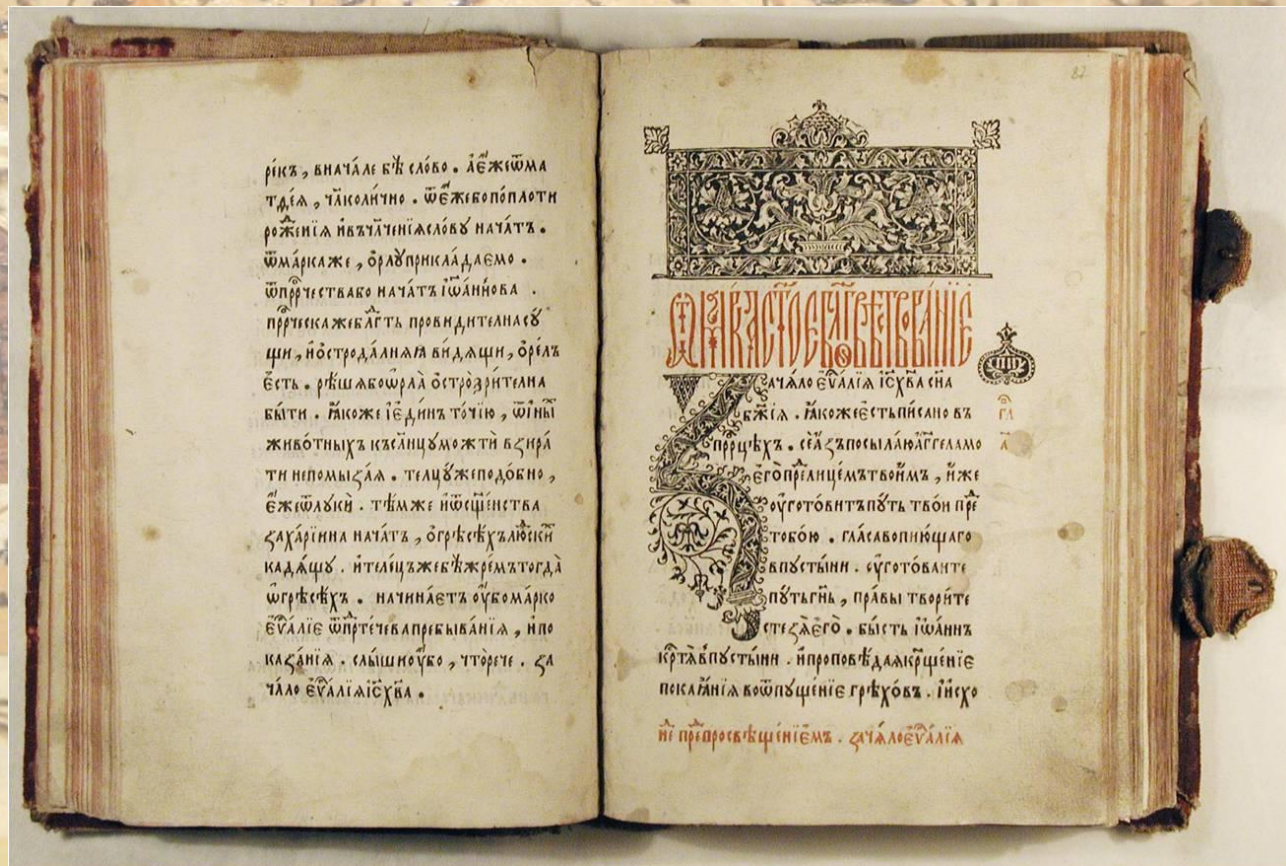 ре́къ, внача́ле бѣ̀ сло́во. а҆є҆́жеѿма
тѳе́я, чл҃колѝчно. ѿє҆́жебопопло́ти
роже́нїѧ и҆въчл҃че́нїѧсло́вꙋ нача́тъ.
ѿма́ркаже, о҆рлꙋ̀прикла́даемо.
ѿпрⷪ҇ро́чествабо нача́тъ і҆ѡа́ннова.
прⷪ҇ро́ческажебл҃гть провидителнасꙋ́
щи, и҆ѻ҆строда́лнѧѧ ви́дѧщи, о҆ре́лъ
є҆́сть. рѣ́шѧбоѡ҆рла̀ ѻ҆стрѻ̀зри́телна
бы́ти. ꙗ҆́коже і҆є҆ди́нъ то́чїю, ѿи҆ны́
живо́тныхъ късл҃нцꙋмо́жтѝ взира́
ти непомыза́ѧ. телцꙋ́жеподо́бно,
є҆́жеѿлꙋкѝ. тѣ́мже и҆ѿсщ҃е́нства
заха́рїина нача́тъ, ѻ҆грѣсѣ́хълю́скⷣи
кадѧ́щꙋ. и҆теле́цъжебѣ̀жре́мътогда̀
ѡ҆грѣсѣ́хъ. начина́етъ ᲂу҆́бома́рко
є҆ѵⷢ҇а́лїе ѿпрⷣте́чевапребыва́нїѧ, и҆по
каза́нїѧ. слы́шиᲂу҆́бо, что̀рече. за
ча́ло є҆ѵⷢ҇а́лїѧі҆с҃хв҃а.
87
ѿ ма́рка ст҃о́е є҆ѵⷢ҇лїе
зача́ло є҆ѵⷢ҇а́лїѧ і҆с҃хв҃а сн҃а
бж҃їѧ. ꙗ҆́кожеє҆́стьпи́сано въ
прⷪ҇ро́цѣхъ. сѐа҆́зъпосыла́юа҆́гг҃еламо
є҆го̀пре́ⷣлице́мътвои҆́мъ, и҆́же
ᲂу҆гото́витъпꙋ́ть тво́и преⷣ
тобо́ю. гла́съвопию́щаго
впꙋсты́ни. ᲂу҆гото́ваите
пꙋ́тьгн҃ь, пра́вы твори́те
стезѧ̀є҆го̀. бы́сть і҆ѡа́ннъ
крⷭ҇тѧ̀впꙋсты́ни. и҆пропове́даѧкрⷳще́нїе
покаѧ́нїѧ воѿпꙋще́нїе грѣхо́въ. і҆и҆схо
не преⷣпросвѣще́нїемъ. зача́лоє҆ѵⷢ҇а́лїѧ